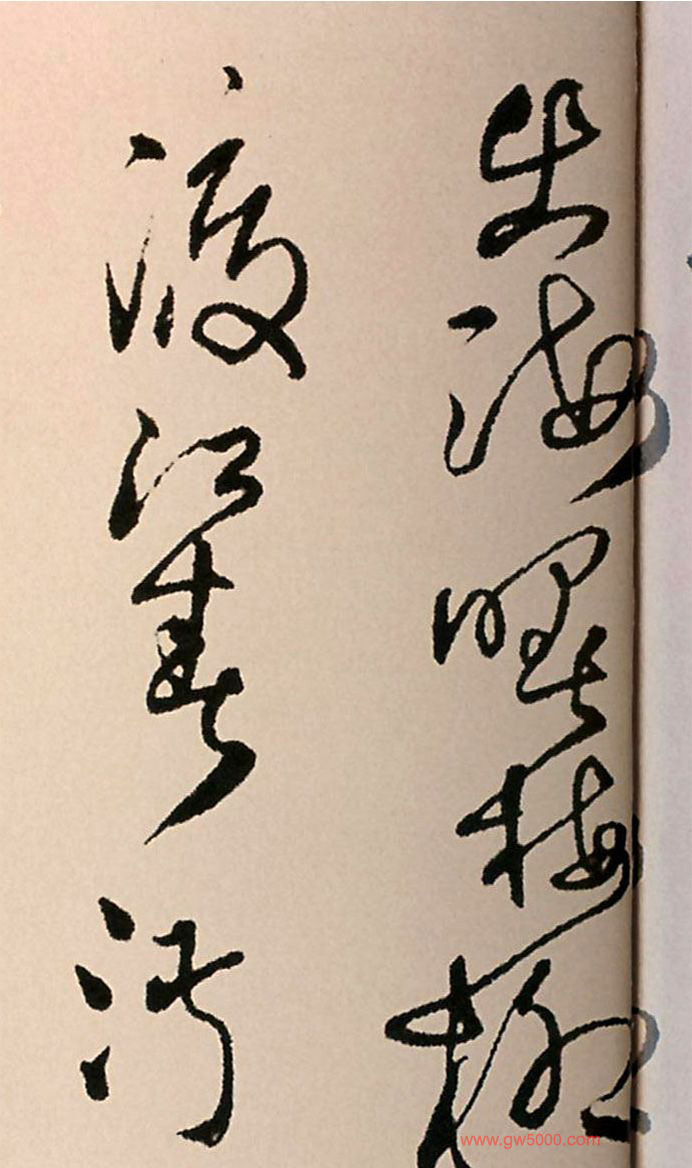 出海曙梅柳
渡江春淑
www.gw5000.com